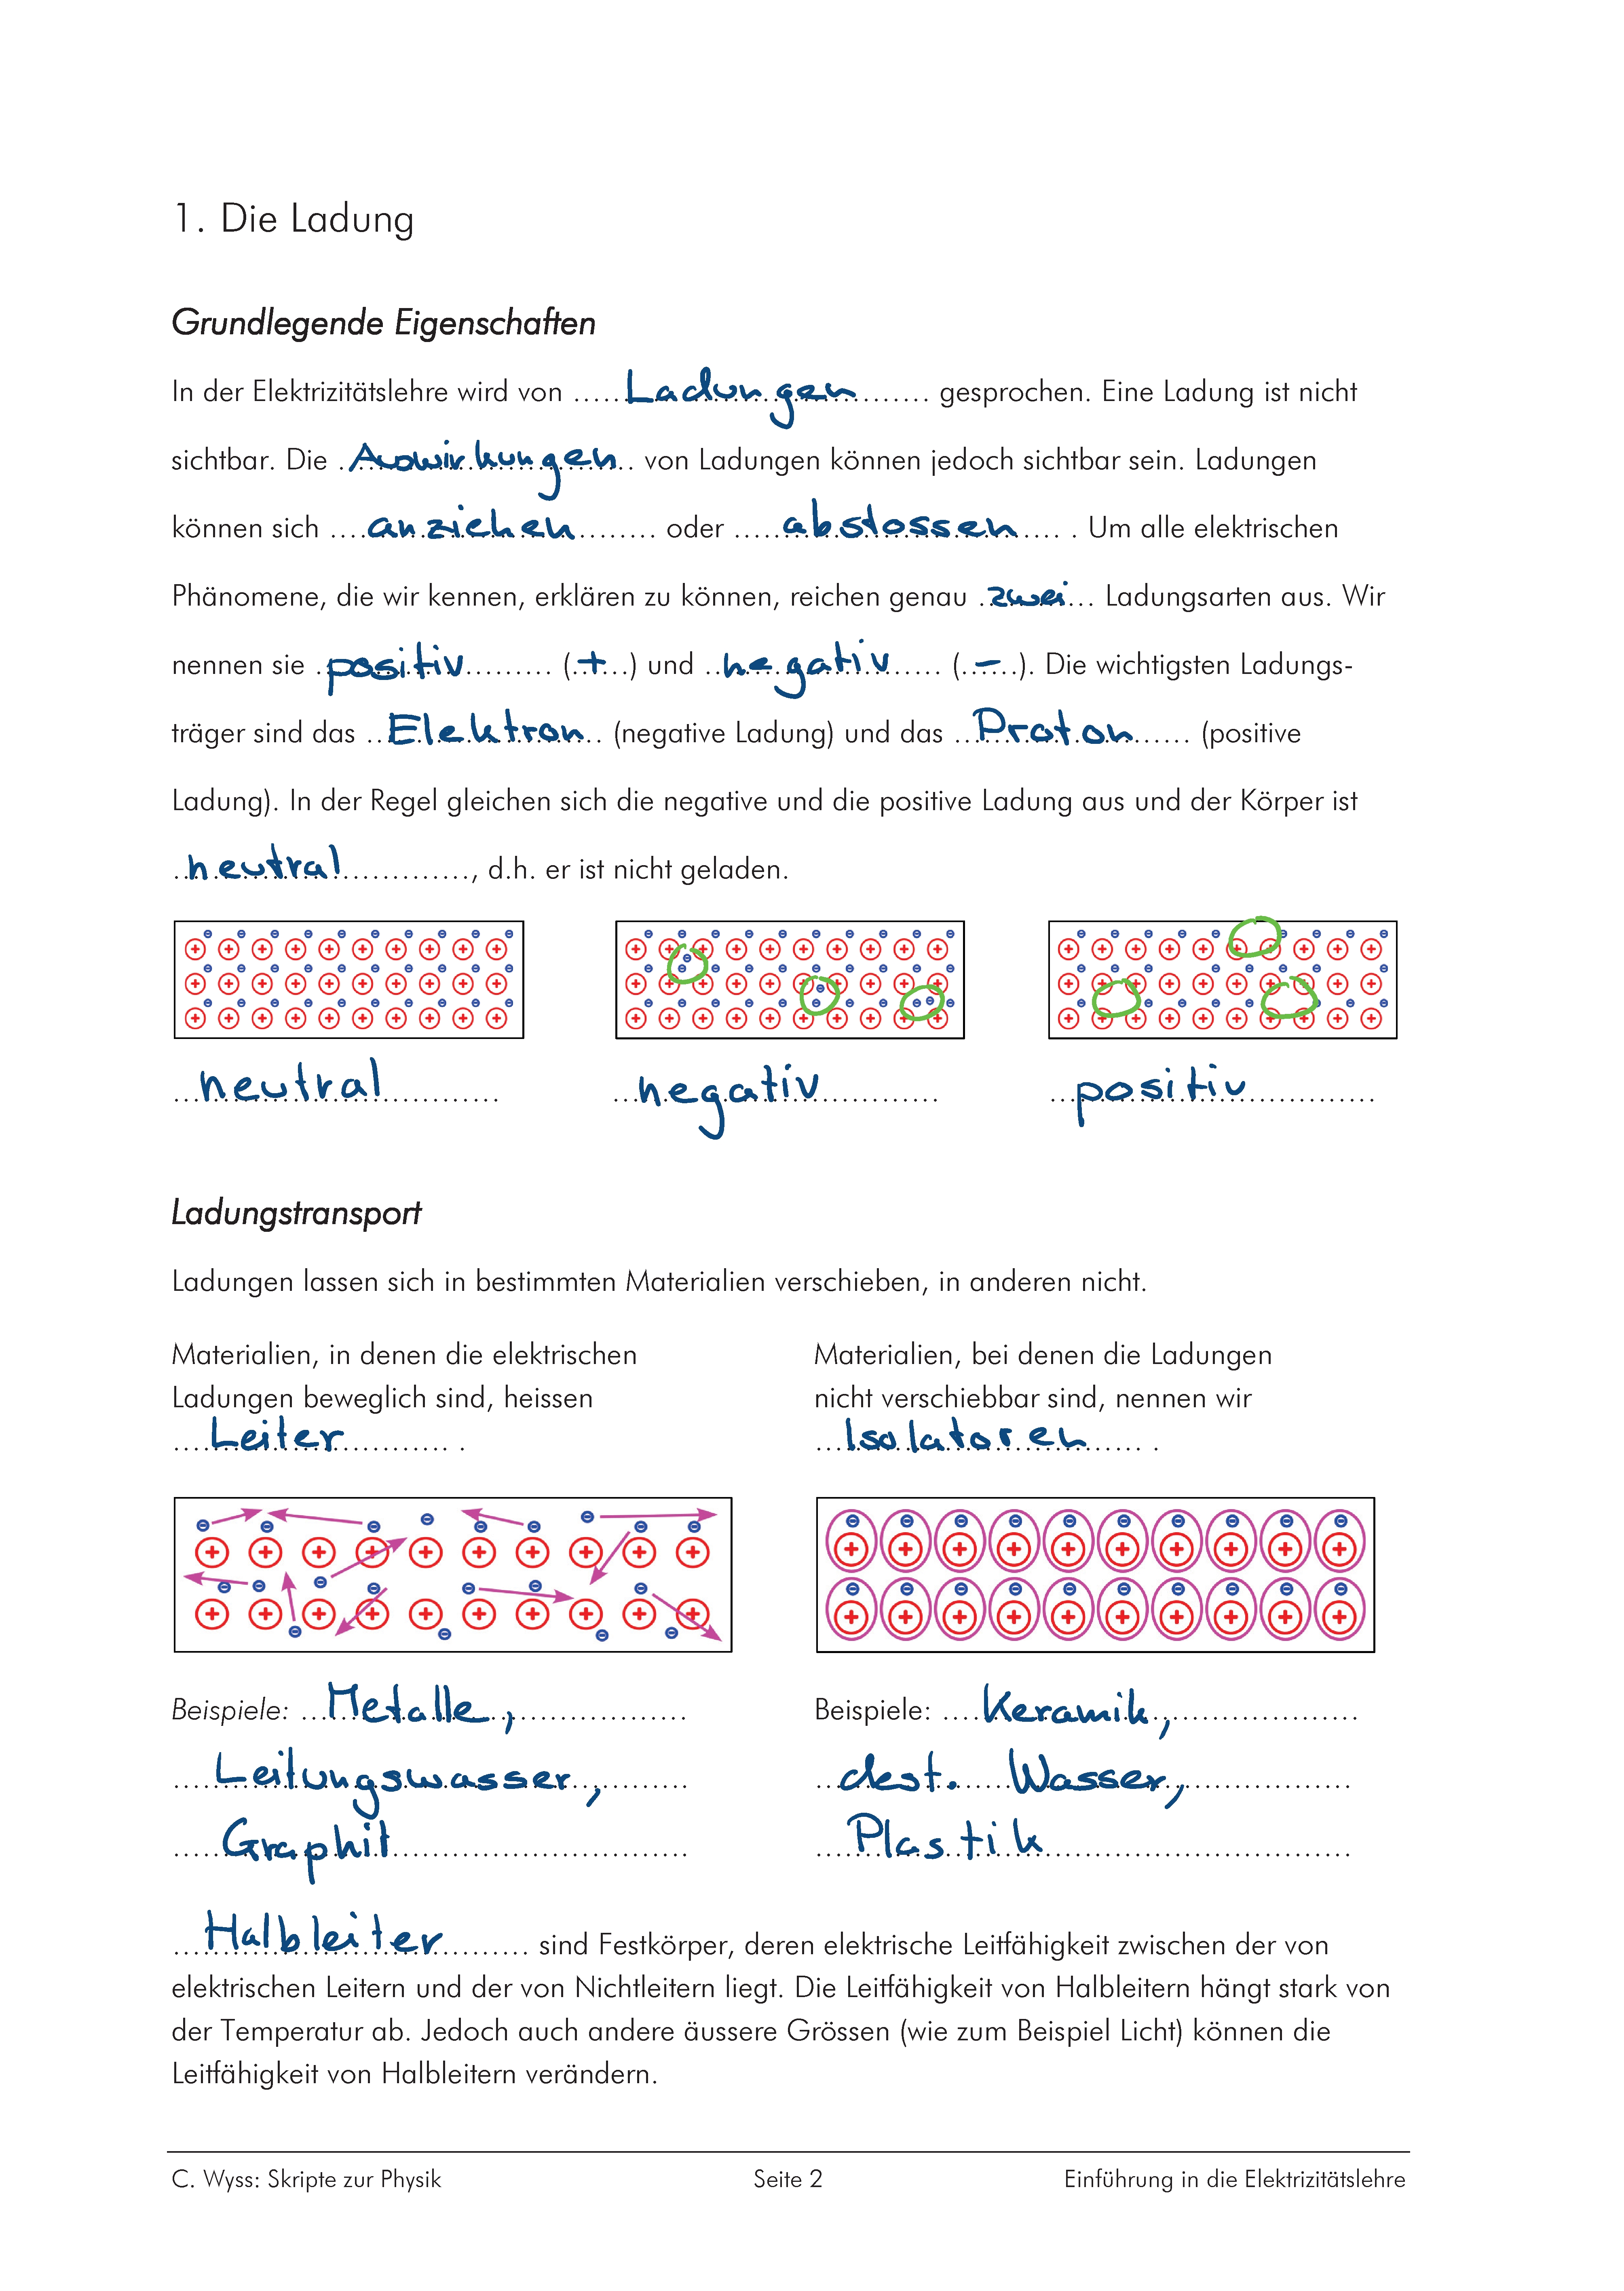 1. Die Ladung
Grundlegende Eigenschaften
In der Elektrizitätslehre wird von ..... Ladungen ..... gesprochen. Eine Ladung ist nicht
sichtbar. Die ..... Auswirkungen ..... von Ladungen können jedoch sichtbar sein. Ladungen
können sich ..... anziehen ..... oder ..... abstossen ..... . Um alle elektrischen
Phänomene, die wir kennen, erklären zu können, reichen genau ..... zwei ..... Ladungsarten aus. Wir
nennen sie ..... positiv ..... (..+..) und ..... negativ ..... (..–..). Die wichtigsten Ladungs-
träger sind das ..... Elektron ..... (negative Ladung) und das ..... Proton ..... (positive
Ladung). In der Regel gleichen sich die negative und die positive Ladung aus und der Körper ist
..... neutral ....., d.h. er ist nicht geladen.
..... neutral ..... ..... negativ ..... ..... positiv .....
Ladungstransport
Ladungen lassen sich in bestimmten Materialien verschieben, in anderen nicht.
Materialien, in denen die elektrischen
Ladungen beweglich sind, heissen
..... Leiter ..... .
Materialien, bei denen die Ladungen
nicht verschiebbar sind, nennen wir
..... Isolatoren ..... .
Beispiele: ..... Metalle, .....
..... Leitungswasser, .....
..... Graphit .....
Beispiele: ..... Keramik, .....
..... dest. Wasser, .....
..... Plastik .....
..... Halbleiter ..... sind Festkörper, deren elektrische Leitfähigkeit zwischen der von
elektrischen Leitern und der von Nichtleitern liegt. Die Leitfähigkeit von Halbleitern hängt stark von
der Temperatur ab. Jedoch auch andere äussere Grössen (wie zum Beispiel Licht) können die
Leitfähigkeit von Halbleitern verändern.
C. Wyss: Skripte zur Physik Seite 2 Einführung in die Elektrizitätslehre